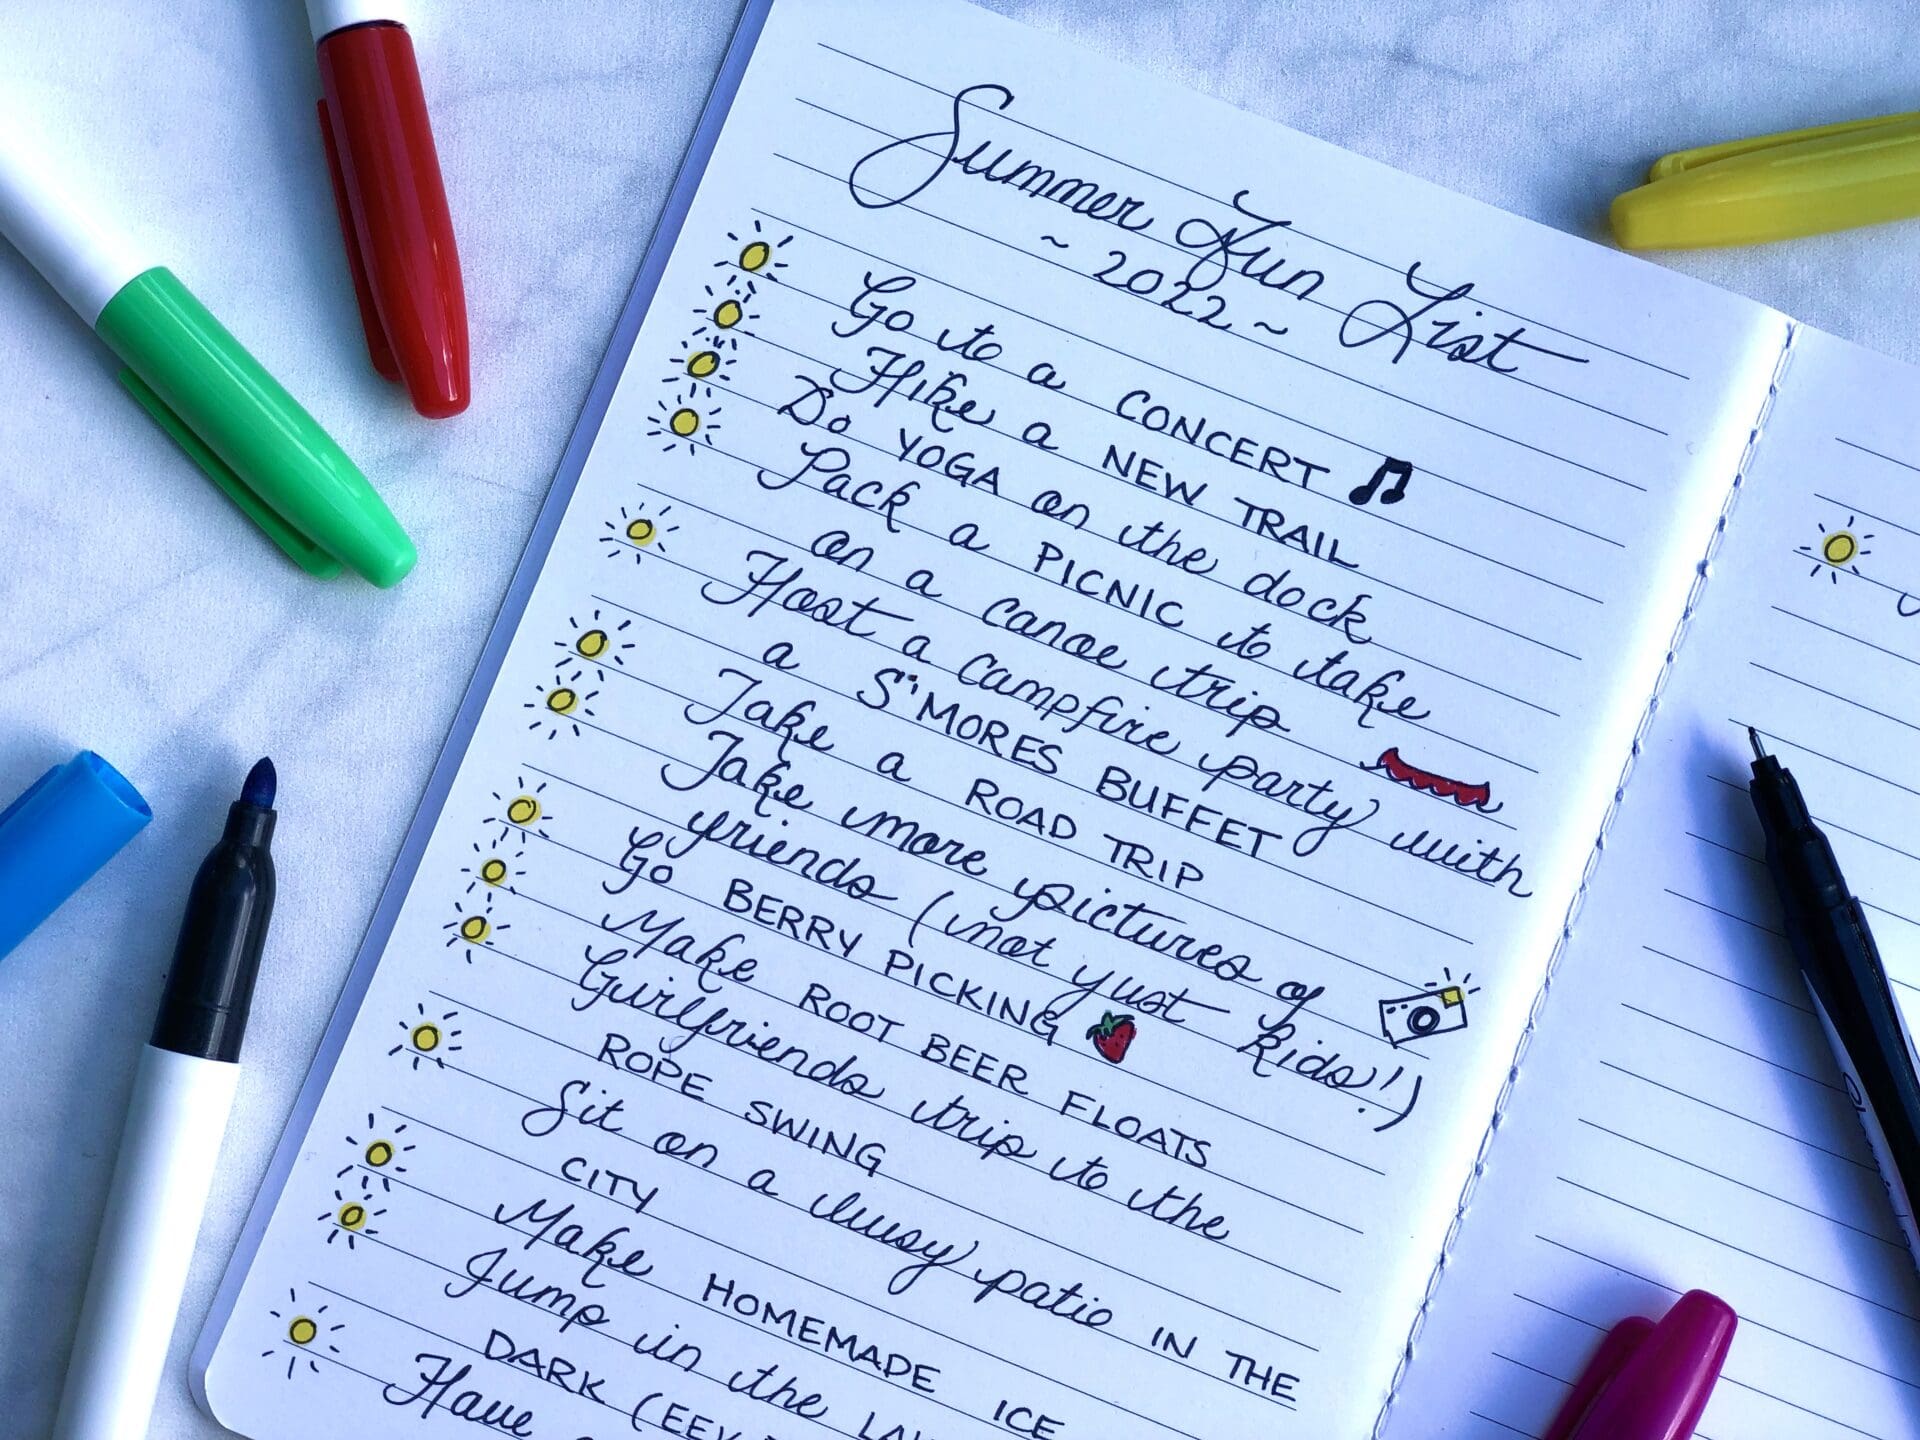 Summer Fun List
~ 2022 ~
Go to a CONCERT
Hike a NEW TRAIL
Do YOGA on the dock
Pack a PICNIC to take
on a canoe trip
Host a campfire party with
a S'MORES BUFFET
Take a ROAD TRIP
Take more pictures of
friends (not just kids!)
Go BERRY PICKING
Make ROOT BEER FLOATS
Girlfriends trip to the
ROPE SWING
Sit on a busy patio IN THE
CITY
Make HOMEMADE ICE
Jump in the
DARK (EEV
Have